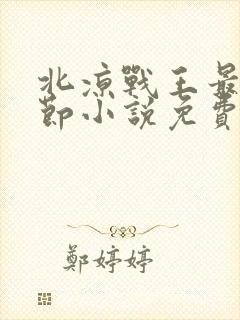 北涼戰王最
節小說免費
鄭婷婷